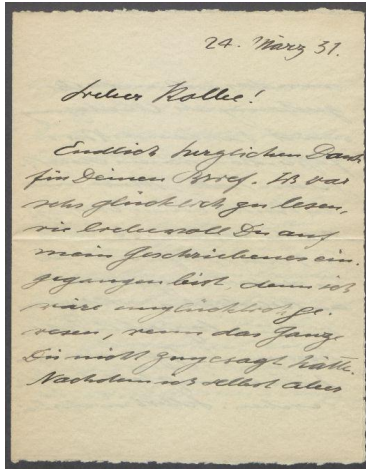 24. März 31.
Lieber Kolbe!
Endlich herzlichen Dank
für Deinen Brief. Ich war
sehr glücklich zu lesen,
wie liebevoll Du auf
mein Geschriebenes ein-
gegangen bist, denn ich
wäre unglücklich ge-
wesen, wenn das Ganze
Dir nicht zugesagt hätte.
Nachdem ich selbst aber